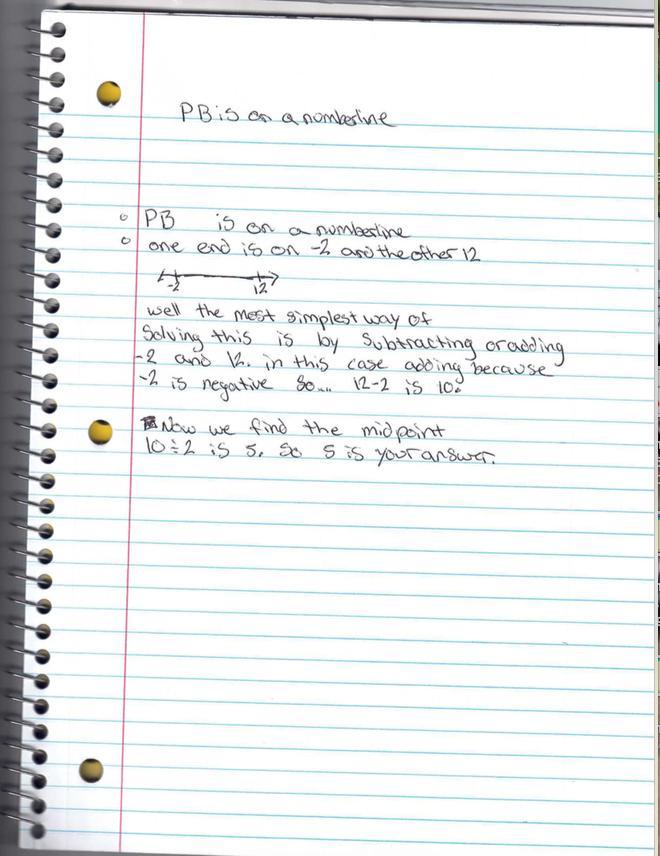 PB is on a numberline
PB is on a numberline
one end is on -2 and the other 12
-2 12
well the most simplest way of
Solving this is by subtracting or adding
-2 and 12. in this case adding because
-2 is negative so... 12-2 is 10.
Now we find the midpoint
10÷2 is 5. So 5 is your answer.